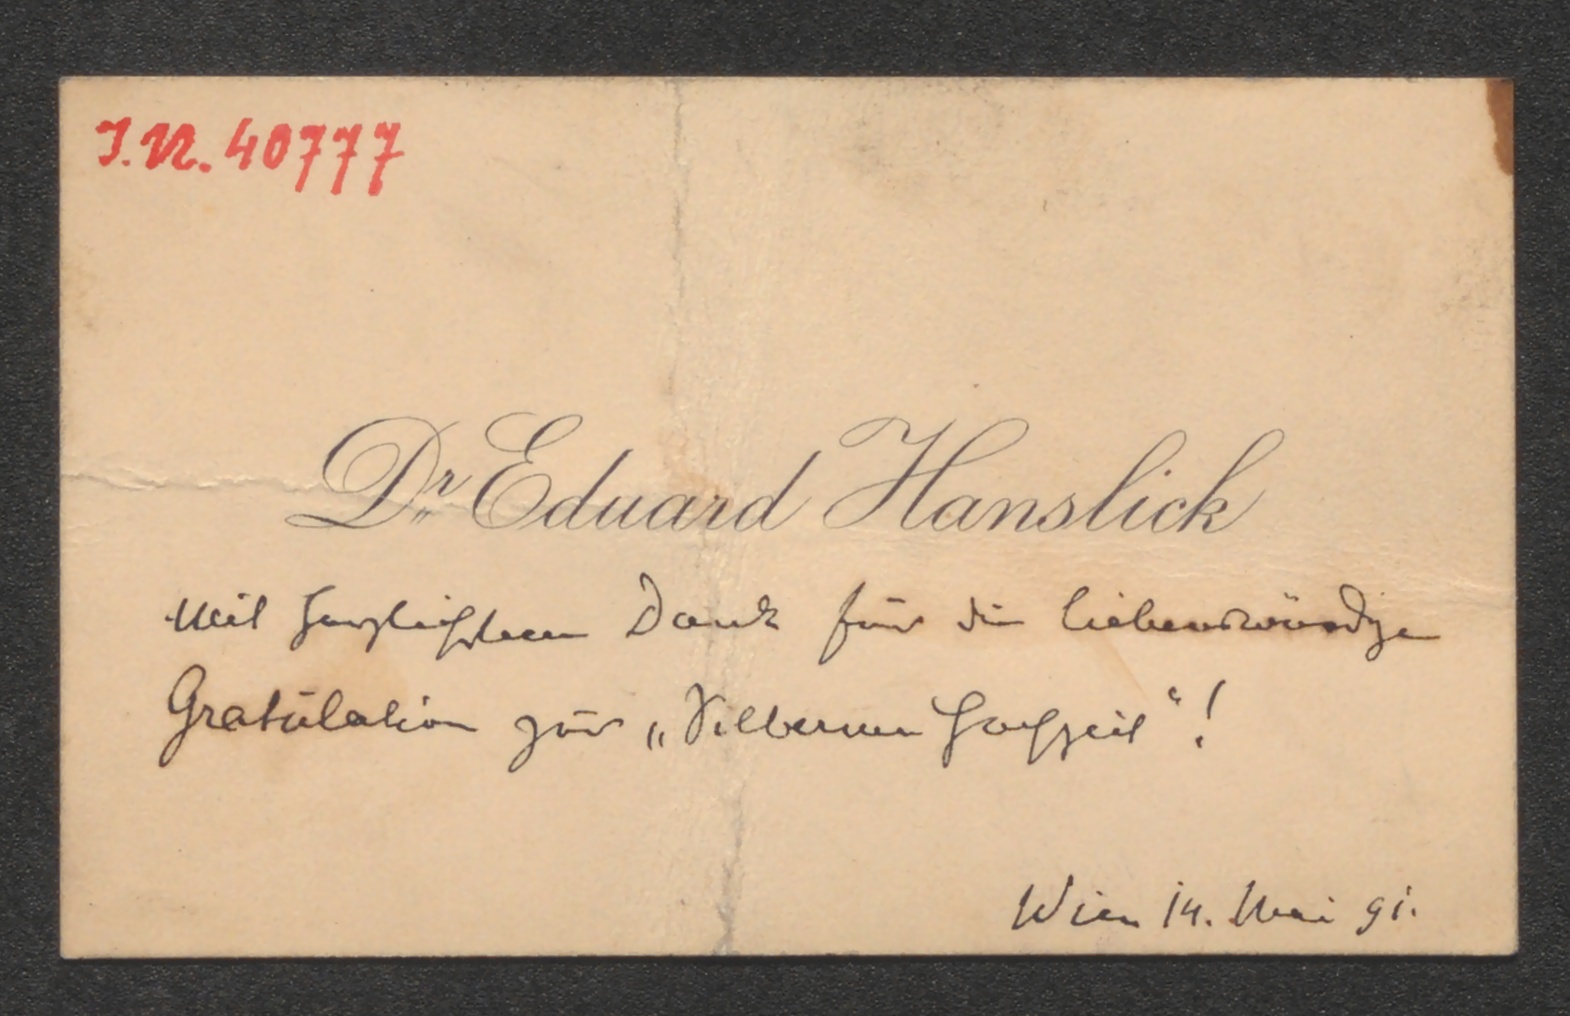 I.N. 40777
Dr Eduard Hanslick
mit herzlichstem Dank für die liebenswürdige
Gratulation zur „Silbernen Hochzeit“!
Wien 14. Mai 91.